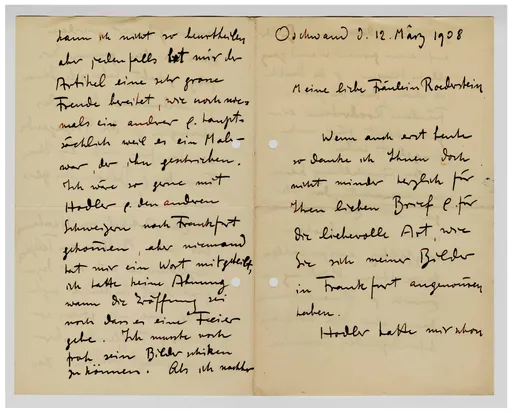 Oschwand d. 12. März 1908
Meine liebe Fräulein Roederstein
Wenn auch erst heute
so danke ich Ihnen doch
nicht minder herzlich für
Ihren lieben Brief & für
die liebevolle Art, wie
Sie sich meiner Bilder
in Frankfurt angenommen
haben.
Hodler hatte mir schon
kann ich nicht so beurtheilen
aber jedenfalls hat mir der
Artikel eine sehr grosse
Freude bereitet, wie noch nie-
mals ein andrer & haupt-
sächlich weil es ein Maler
war, der ihn geschrieben.
Ich wäre so gerne mit
Hodler & den anderen
Schweizern nach Frankfurt
gekommen, aber niemand
hat mir ein Wort mitgetheilt,
ich hatte keine Ahnung
wann die Eröffnung sei
noch dass es eine Feier
gebe. Ich musste noch
froh sein Bilder schiken
zu können. Als ich nachher